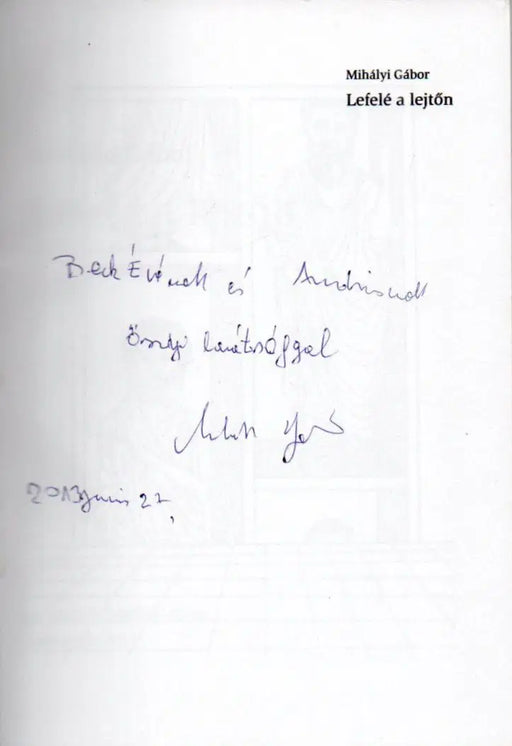 Mihályi Gábor
Lefelé a lejtőn
Beck Évának és Andrisnak
őszinte barátsággal
2013 junis 27,